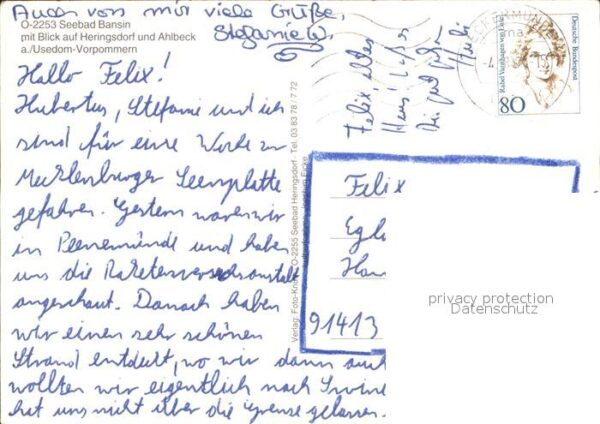 Auch von mir viele Grüße,
Stefanie
O-2253 Seebad Bansin
mit Blick auf Heringsdorf und Ahlbeck
a./Usedom-Vorpommern
Hallo Felix!
Hubertus, Stefanie und ich
sind für eine Woche zur
Mecklenburger Seenplatte
gefahren. Gestern waren wir
in Peenemünde und haben
uns die Raketenversuchsanstalt
angeschaut. Danach haben
wir einen sehr schönen
Strand entdeckt, wo wir dann auch
wollten wir eigentlich nach
hat uns nicht über die Grenze gelassen.
Felix altes
Haus! Laß es
Dir gut gehen
Verlag: Foto-
O-2255 Seebad Heringsdorf · Tel. 03 83 78 / 7 72
Deutsche Bundespost
Rahel Varnhagen von Ense
80
Felix
Egl
Han
91413
privacy protection
Datenschutz